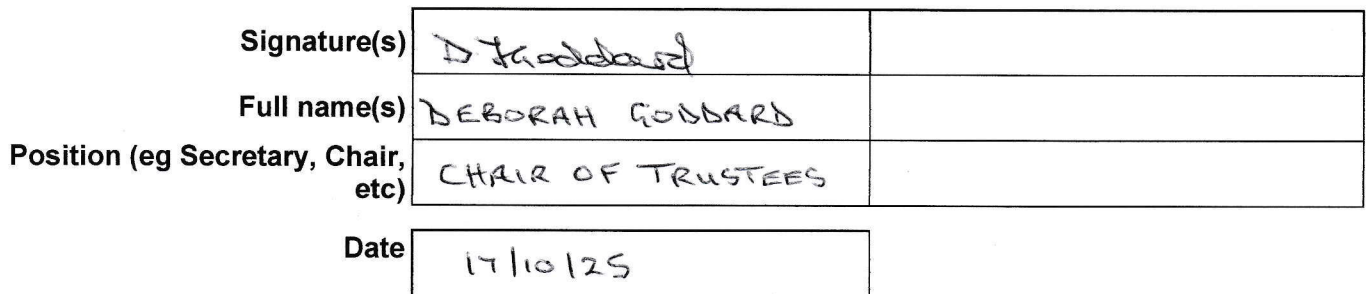 Signature(s) D Goddard
Full name(s) DEBORAH GODDARD
Position (eg Secretary, Chair, etc) CHAIR OF TRUSTEES
Date 17/10/25